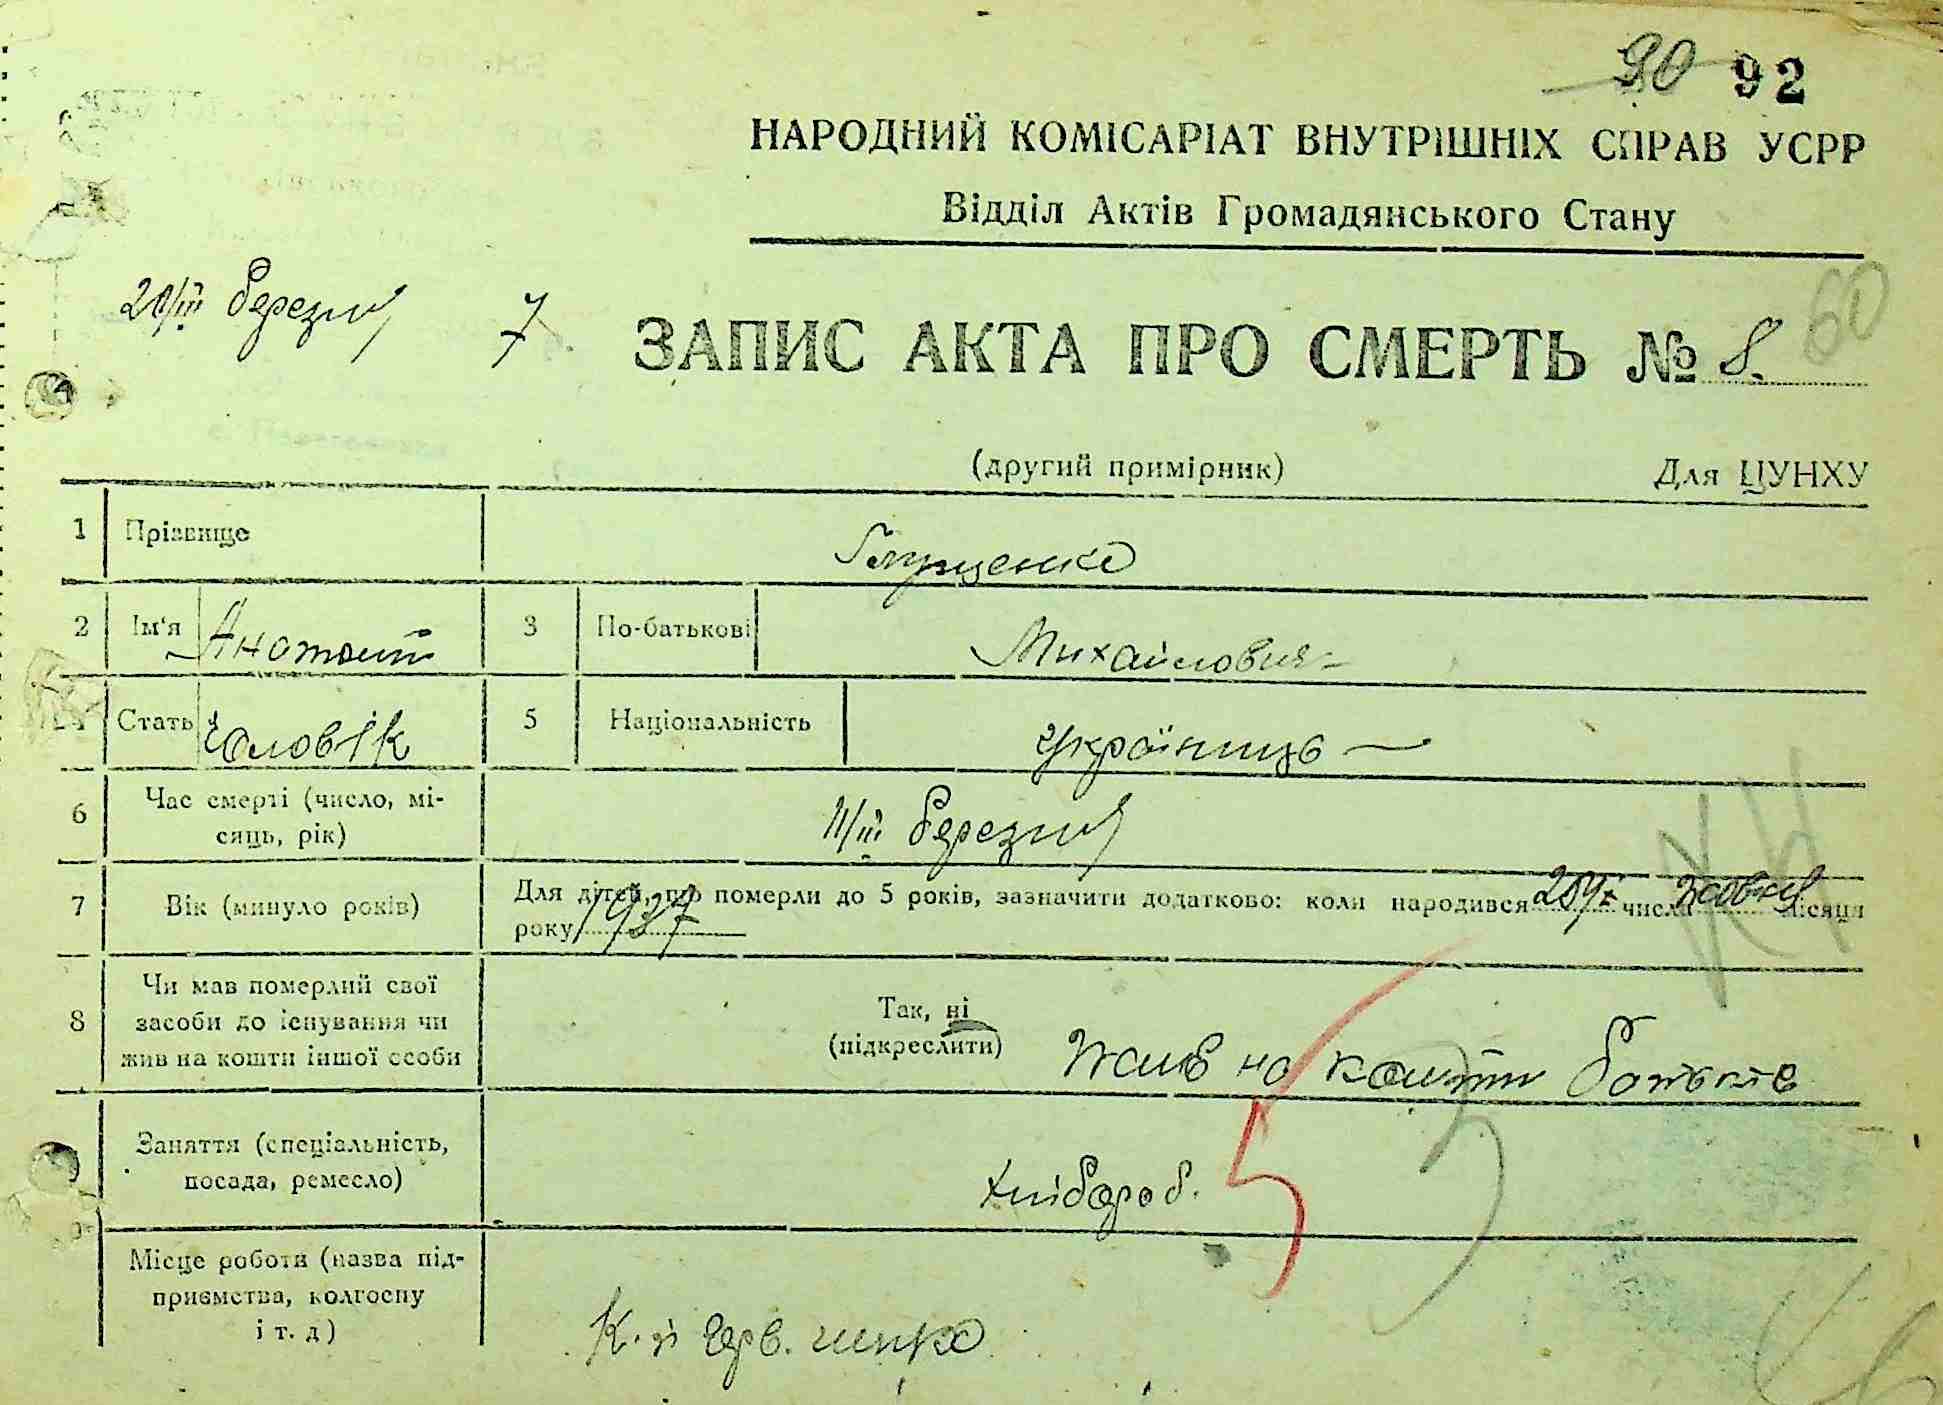 90 92
НАРОДНИЙ КОМІСАРІАТ ВНУТРІШНІХ СПРАВ УСРР
Відділ Актів Громадянського Стану
20/III березня 7
ЗАПИС АКТА ПРО СМЕРТЬ № 8. 60
(другий примірник) Для ЦУНХУ
1 Прізвище Глущенко
2 Ім'я Анатоит 3 По-батькові Михайлович
Стать Чоловік 5 Національність Українець
6 Час смерті (число, мі-
сяць, рік) 11/III березня
7 Вік (минуло років) Для дітей, що померли до 5 років, зазначити додатково: коли народився числа жовтня місяця
року 1937
8 Чи мав померлий свої
засоби до існування чи
жив на кошти іншої особи
Так, ні
(підкреслити) Жив на кошти батьків
Заняття (спеціальність,
посада, ремесло) хлібороб.
Місце роботи (назва під-
приємства, колгоспу
і т. д)
К. г Черв.